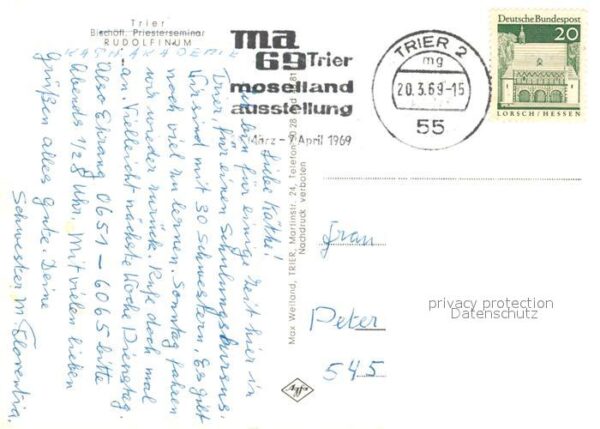 Trier
Bischöfl. Priesterseminar
RUDOLFINUM
KATH. AKADEMIE
ma
69 Trier
moselland
ausstellung
März - 7 April 1969
TRIER 2
mg
20.3.69-15
55
Deutsche Bundespost
20
LORSCH/HESSEN
Liebe Käthe!
bin für einige Zeit hier in
Trier, für einen Schulungskursus.
Wir sind mit 30 Schwestern. Es gibt
noch viel zu lernen. Sonntag fahren
wir wieder zurück. Rufe doch mal
an. Vielleicht nächste Woche Dienstag.
Also Ehrang 0651 - 6065 bitte
Abends 1/2 8 Uhr. Mit vielen lieben
Grüßen alles Gute. Deine
Schwester M. Florentia.
Max Weiland, TRIER, Martinstr. 24, Telefon
Nachdruck verboten
Agfa
Frau
Peter
545
privacy protection
Datenschutz